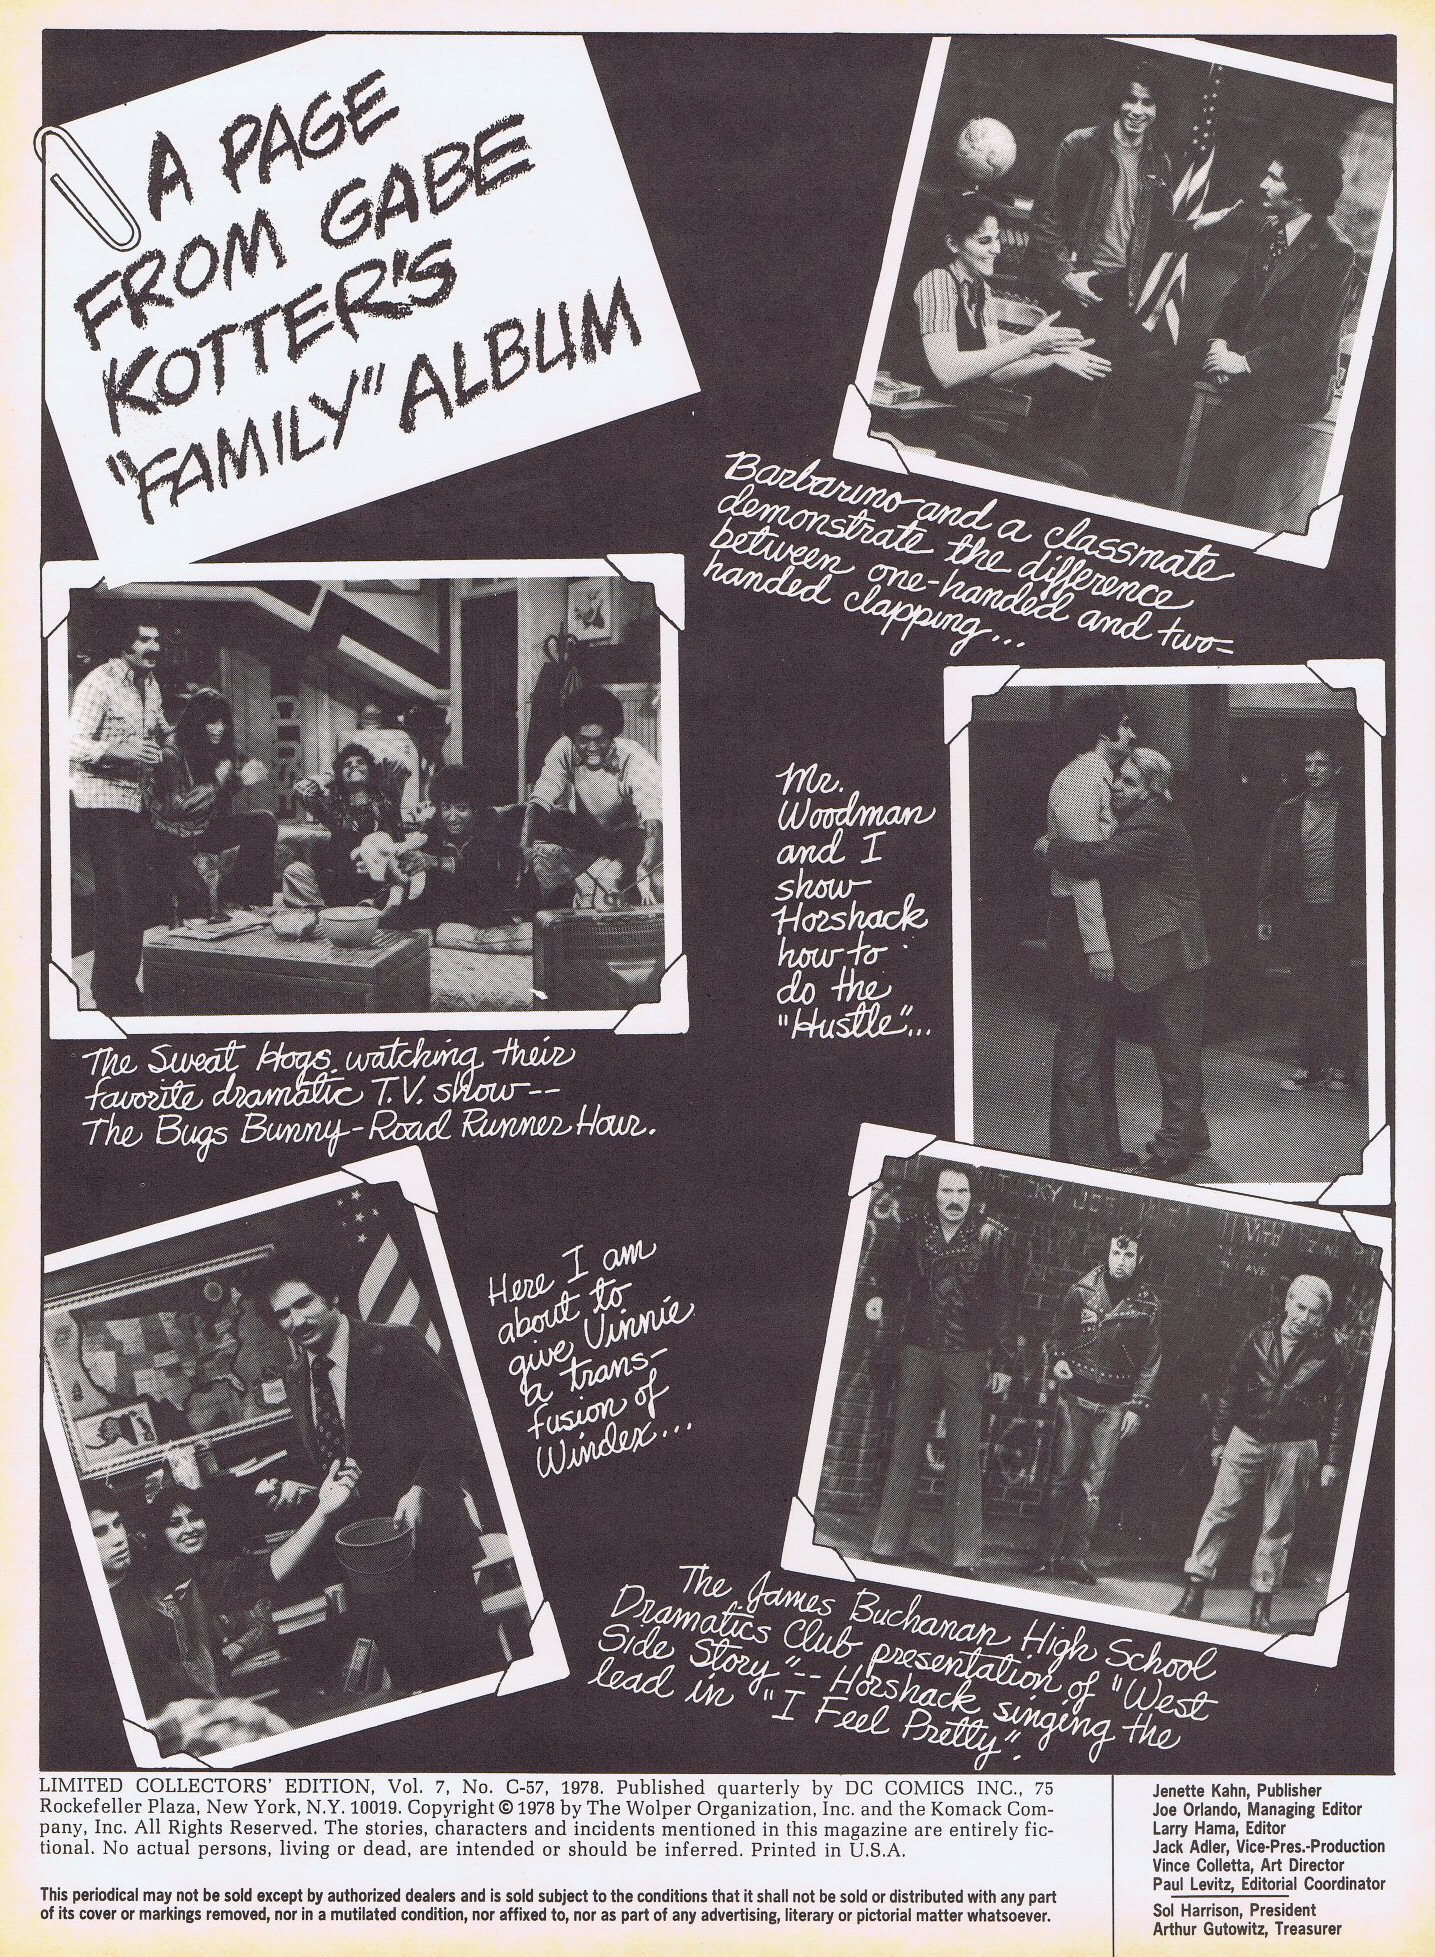 A PAGE
FROM GABE
KOTTER'S
"FAMILY" ALBUM
Barbarino and a classmate
demonstrate the difference
between one-handed and two-
handed clapping...
The Sweat Hogs watching their
favorite dramatic T.V. show--
The Bugs Bunny-Road Runner Hour.
Mr.
Woodman
and I
show
Horshack
how to
do the
"Hustle"...
Here I am
about to
give Vinnie
a trans-
fusion of
Windex...
VITO
AVE
The James Buchanan High School
Dramatics Club presentation of "West
Side Story"-- Horshack singing the
lead in "I Feel Pretty".
LIMITED COLLECTORS' EDITION, Vol. 7, No. C-57, 1978. Published quarterly by DC COMICS INC., 75
Rockefeller Plaza, New York, N.Y. 10019. Copyright © 1978 by The Wolper Organization, Inc. and the Komack Com-
pany, Inc. All Rights Reserved. The stories, characters and incidents mentioned in this magazine are entirely fic-
tional. No actual persons, living or dead, are intended or should be inferred. Printed in U.S.A.
This periodical may not be sold except by authorized dealers and is sold subject to the conditions that it shall not be sold or distributed with any part
of its cover or markings removed, nor in a mutilated condition, nor affixed to, nor as part of any advertising, literary or pictorial matter whatsoever.
Jenette Kahn, Publisher
Joe Orlando, Managing Editor
Larry Hama, Editor
Jack Adler, Vice-Pres.-Production
Vince Colletta, Art Director
Paul Levitz, Editorial Coordinator
Sol Harrison, President
Arthur Gutowitz, Treasurer